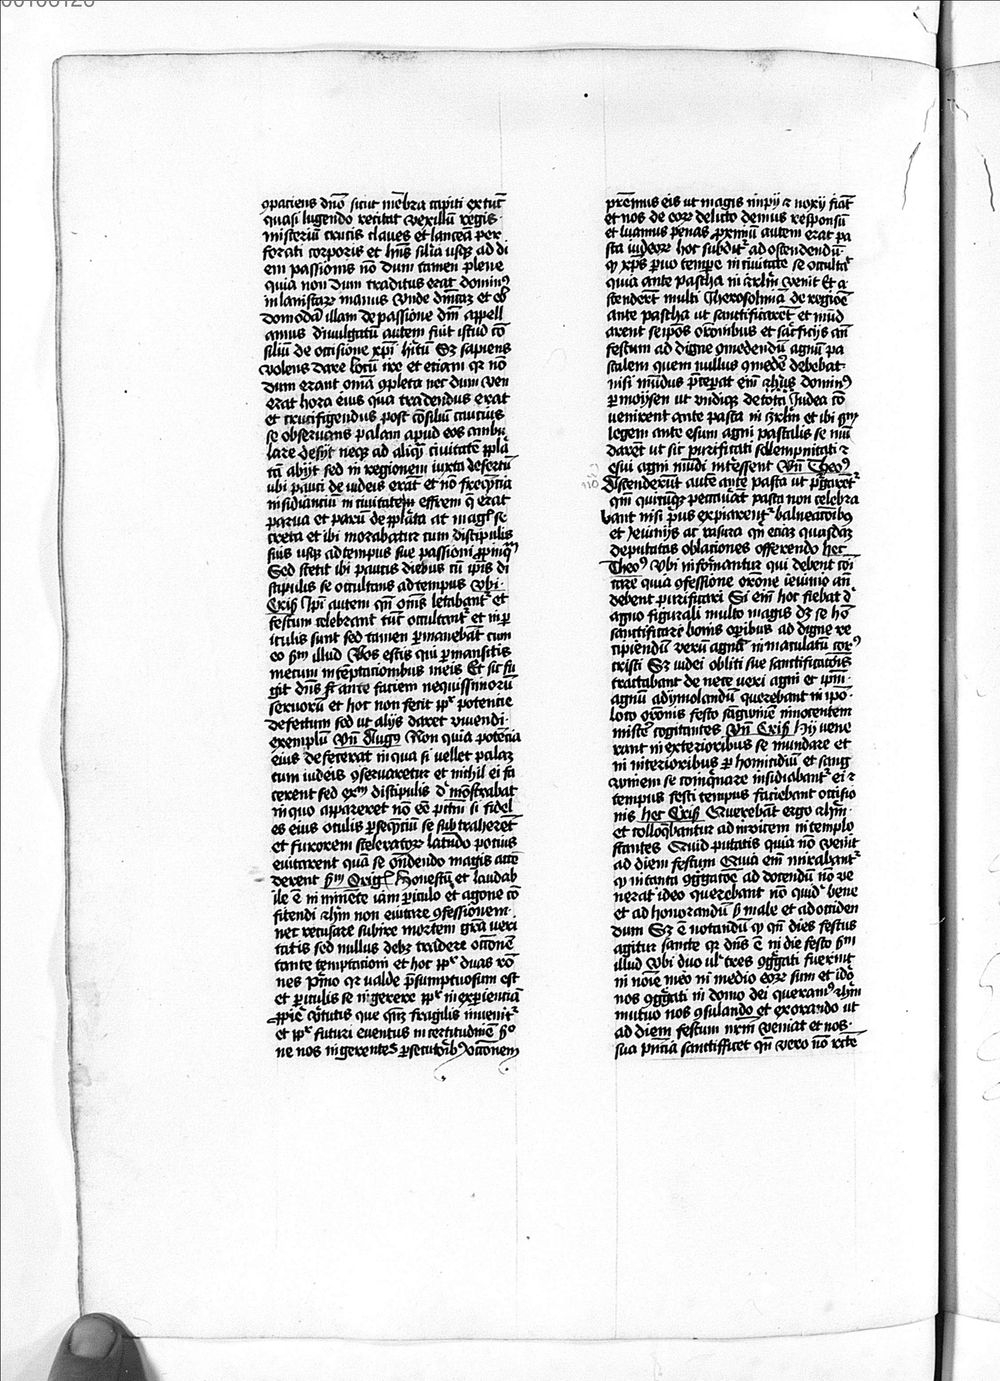 00100128
ꝯpaciens dño sicut mēbra capiti ex tūc
quasi lugendo recitat vexillū regis
misteriū crucis claues et lanceā per
forati corporis et hm̄s silia usqꝫ ad di
em passionis nō dum tamen plene
quia non dum traditus erat dominꝰ
in lanistaꝝ manus Unde dn̄icaꝫ et eb
domodā illam de passione dn̄i appell
amus Diuulgatū autem fuit istud cō
siliū de occisione xp̄i hītū Sꝫ sapiens
volens dare locū ire et etiam qꝛ nō
dum erant om̄ia ꝯpleta nec dum ven
erat hora eius qua tradendus erat
et crucifigendus post cōsiliū cautius
se obseruans palam apud eos ambu
lare desijt neqꝫ ad aliqͣ ciuitatē ꝓplā
tā abijt sed in regionem iuxta desertū
ubi pauci de iudeis erat et nō freqn̄cia
insidianciū in ciuitatem effrem q̄ erat
parua et parū de ꝓplāta at magl̓ se
creta et ibi morabatur cum discipulis
suis usqꝫ ad tempus sue passioni ꝓpinqͫ
Sed stetit ibi paucis diebus cū ip̄is di
scipulis se occultans ad tempus Ubi
Crisꝰ Ip̄i autem qn̄ om̄s letabantᷣ et
festum celebrant tūc occultantᷣ et in ꝑ
iculis sunt sed tamen ꝑmanebāt cum
eo ẜm illud Vos estis qui ꝑmansistis
mecum in tēptacionibus meis Et sic fu
git dn̄s ſꝫ ante faciem nequissimorū
seruorū et hoc non fecit ꝓpᷣ potencie
defectum sed ut alijs daret viuendi
exemplū Vn̄ Augꝰ Non quia potēcia
eius defecerat in qua si vellet palaꝫ
cum iudeis ꝯseruaretur et nichil ei fa
cerent sed exͫ discipulis dᷣmōstrabat
in quo appareret nō eē pctm̄ si fidel
es eius oculis ꝑsequēciū se subtraherēt
et furorem sceleratoꝝ latēdo pocius
euitarent quā se ōndendo magis acce
derent ẜm Orig̓ Honestū et laudab
ile ē in minēte iam ꝑiculo et agone cō
fitendi xp̄m non euitare ꝯfessionem
nec recusare subire mortem gr̄a veri
tatis sed nullus debꝫ tradere occōnē
tante temptacioni et hoc ꝓpᷣ duas rō
nes Pͥmo qꝛ valde p̄sumptuosum est
et ꝑiculis se ingerere ꝓpᷣ inexperienciā
ꝓprie virtutis que qn̄qꝫ fragilis inuenitᷣ
et ꝓpᷣ futuri euentus incertitudinē
ne nos ingerentes ꝑsecutorībꝰ occōnem
premus eis ut magis impij ⁊ noxij fiāt
et nos de eoꝝ delicto demus responsū
et luamus penas proximū autem erat pa
sca iudeoꝝ hoc subditᷣ ad ostendendū
ꝙ xp̄s ꝑuo tempe in ciuitate se occultaᷣ
quia ante pascha in iꝝlm̄ venit Et a
scenderēt multi Iherosolimā de regiōe
ante pascha ut sanctificarēt et mūd
arent seipos orōnibus et sacͥficijs an̄
festum ad digne ꝯmedendū agnū pa
scalem quem nullus ꝯmedeᷣ debebat
nisi mūdus p̄ceperat em̄ dominꝰ
ꝑ moysen ut vndiqꝫ de tota Iudea cō
uenirent ante pasca in iꝝlm̄ et ibi ẜm
legem ante esum agni pascalis se mū
darēt ut sic purificati sollempnitati ⁊
esui agni mūdi int̓essent Vn̄ Theoꝰ
Ascenderūt autē ante pasca ut p̓garētᷣ
qm̄ quicūqꝫ peccauāt pasca non celebra
bant nisi p̓us expiarentᷣ balneacōibꝰ
et ieiunijs ac rasura qn̄ eciaꝫ quasdaꝫ
deputatas oblaciones offerendo hec
Theoꝰ Ubi informantur qui debent cōi
care quia ꝯfessione orōne ieiunio an̄
debent purificari Si em̄ hoc fiebat dᷣ
agno figurali multo magis dꝫ se hō
sanctificare bonis operibus ad digne re
cipiendū verū agnū inmaculatū corꝰ
cristi Sꝫ iudei obliti sue sanctificacōnis
tractabant de nece veri agni et ip̄m
agnū ad ymolandū querebant in ip̄o
loco orōnis festo sangwinē innocentem
miscͤ cogitantes Vn̄ Crisꝰ Hij vene
rant in exterioribus se mundare et
in interioribus ꝑ homicidiū et sang
winem se coinquinare insidiabantᷣ ei ⁊
tempus festi tempus faciebant occisio
nis hec Crisꝰ Querebāt ergo xp̄m
et colloqͣbantur ad inuicem in templo
stantes Quid putatis quia nō venit
ad diem festum Quia em̄ mirabantᷣ
ꝙ in tanta ꝯgͣgacōe ad docendū nō ve
nerat ideo querebant nō quidᷣ bene
et ad honorandū ẜ male et ad occiden
dum Sꝫ ē notandū ꝙ qn̄ dies festus
agitur sancte qꝛ dn̄s ē in die festo ẜm
illud Ubi duo ul̓ tres ꝯgͣgati fuerint
in noīe meo in medio eoꝝ sum et ido
nos ꝯgͣgati in domo dei queramꝰ xp̄m
mutuo nos ꝯsulando et exorando ut
ad diem festum nr̄m veniat et nos
sua pn̄cia sanctifficet qn̄ vero nō recte